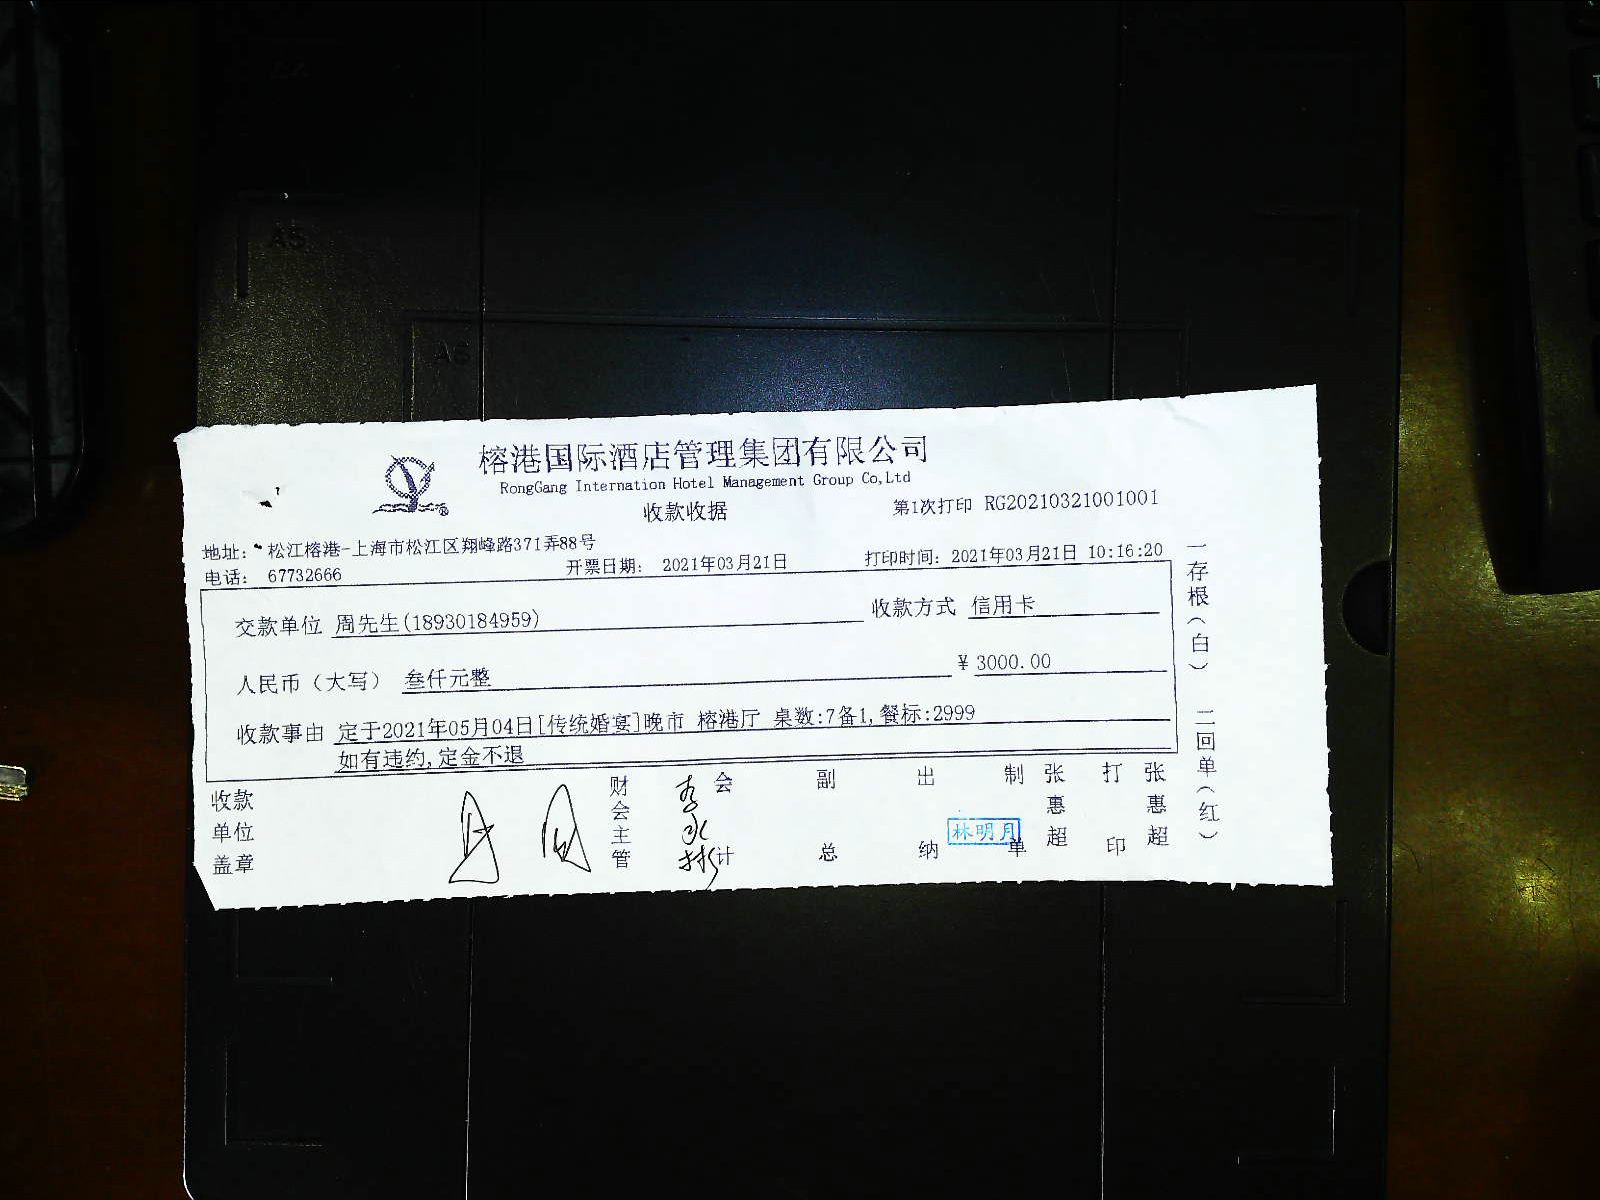 榕港国际酒店管理集团有限公司
RongGang Internation Hotel Management Group Co,Ltd
收款收据
第1次打印 RG20210321001001
地址: 松江榕港-上海市松江区翔峰路371弄88号
电话: 67732666
开票日期: 2021年03月21日
打印时间: 2021年03月21日 10:16:20
交款单位 周先生(18930184959)
收款方式 信用卡
人民币(大写) 叁仟元整
¥ 3000.00
收款事由 定于2021年05月04日[传统婚宴]晚市 榕港厅 桌数:7备1,餐标:2999
如有违约,定金不退
收款单位盖章
财会主管 李水彬
会计
副总
出纳 林明月
制单 张惠超
打印 张惠超
一存根(白)
二回单(红)
A5
A6